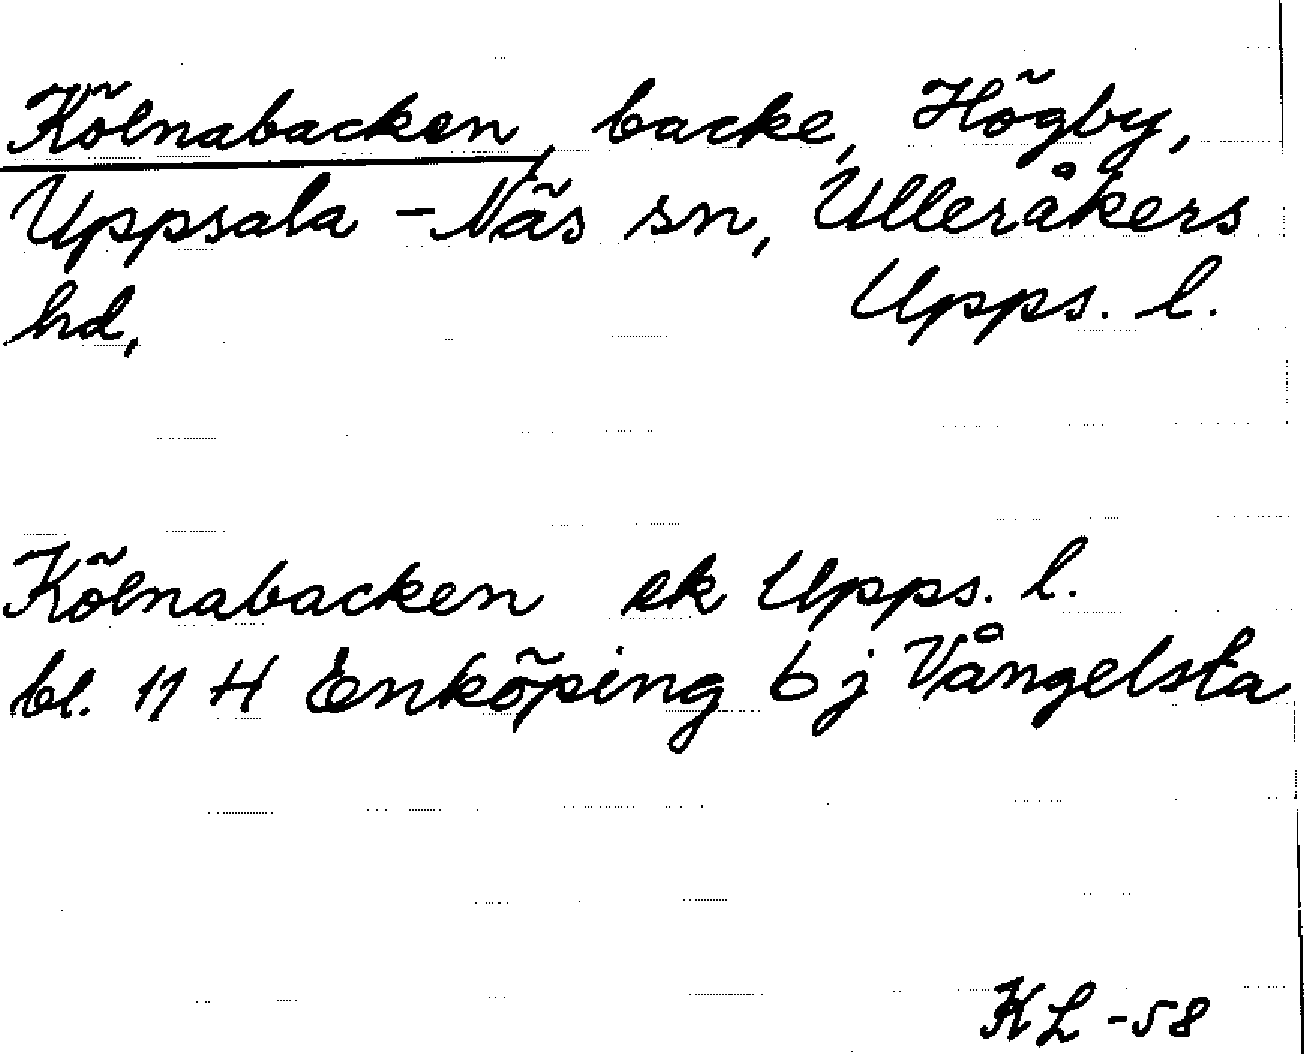 Kölnabacken, backe, Högby,
Uppsala-Näs sn, Ulleråkers
hd, Upps. l.
Kölnabacken ek Upps. l.
bl. 11 H Enköping 6 j Vångelsta
KL -58